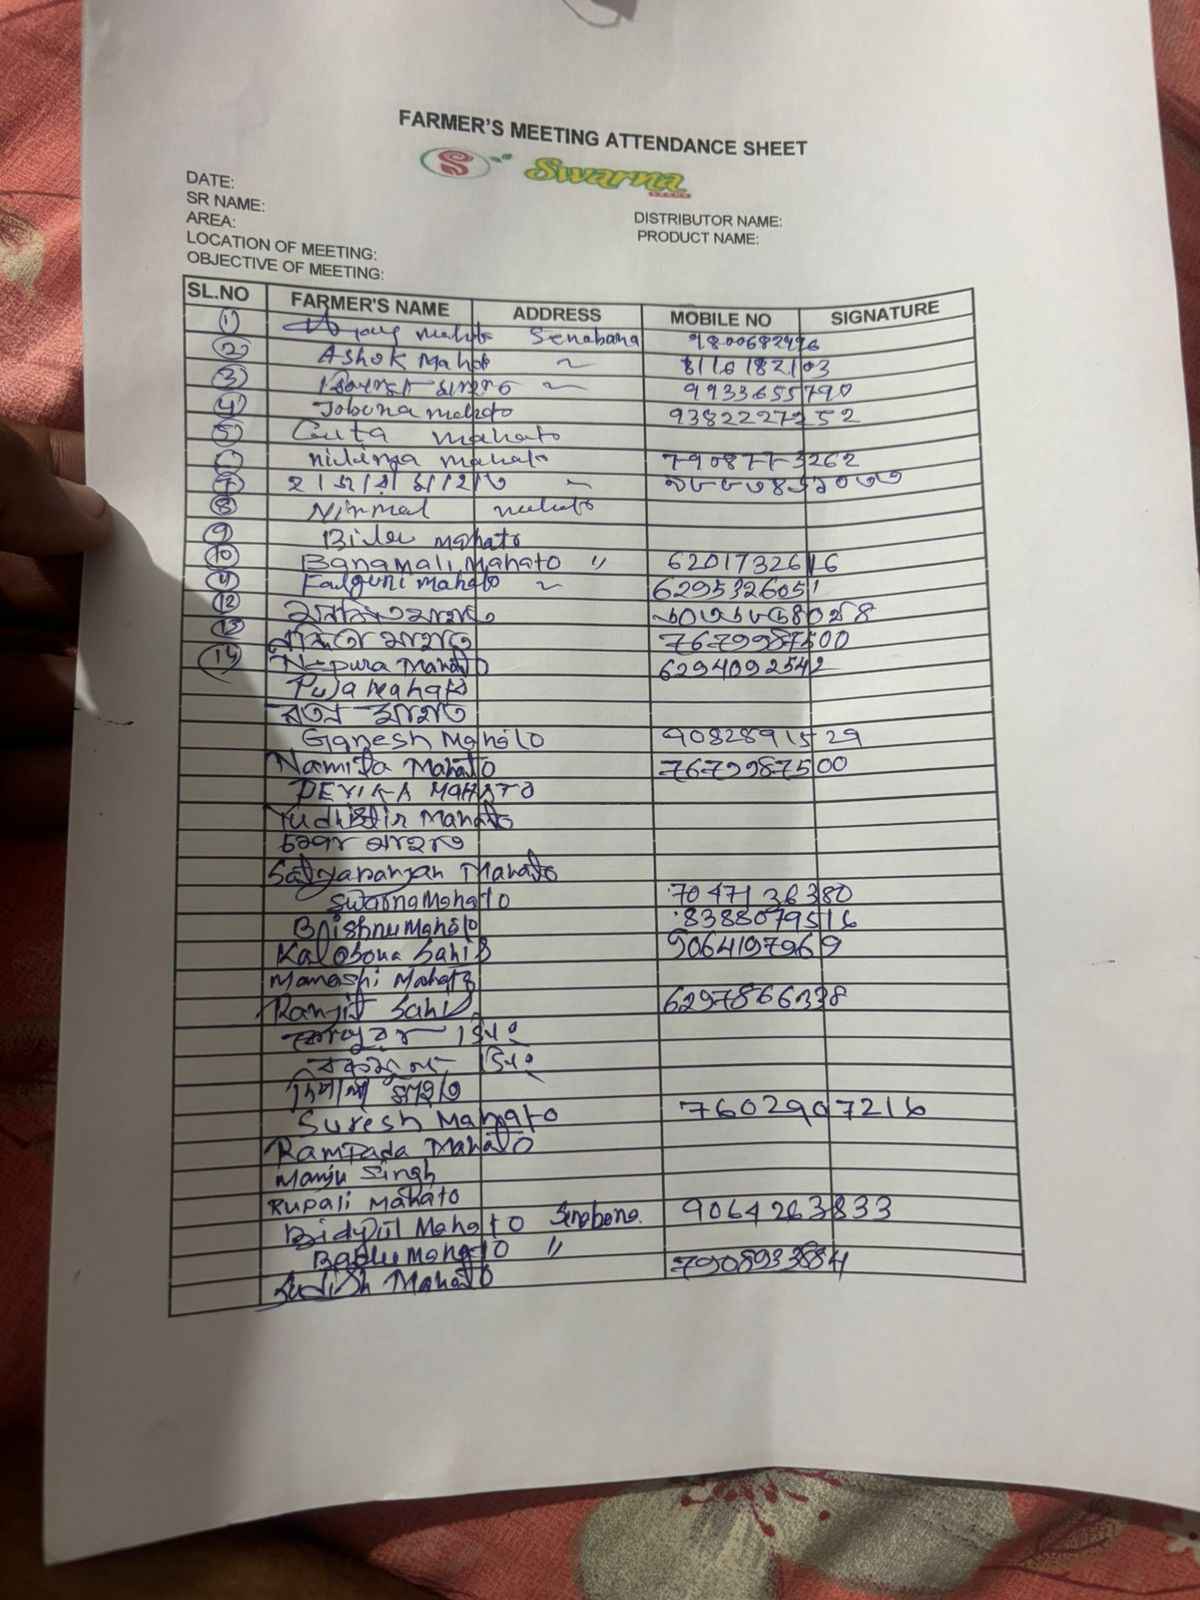 FARMER'S MEETING ATTENDANCE SHEET
S Swarna
DATE:
SR NAME:
AREA:
LOCATION OF MEETING:
OBJECTIVE OF MEETING:
DISTRIBUTOR NAME:
PRODUCT NAME:
SL.NO FARMER'S NAME ADDRESS MOBILE NO SIGNATURE
1 Mahato Senabana 9800682476
2 Ashok Mahato 8116182103
3 9933655790
4 Jobona mahato 9382227252
5 mahato
mahato 7908773262
7 হাজারী মাহাত
8 Nirmal mahato
9 mahato
10 Banamali Mahato " 6201732616
11 Falguni mahato 6295326051
12 মাহাত
13 মাহাত 7679987500
14 Nepura Mahato 6294092542
Puja Mahato
মাহাত
Ganesh Mahato 9082891529
Namita Mahato 7679987500
DEVIKA MAHATO
Yudhistir Mahato
মাহাত
Satyaranjan Mahato
Swarna Mahato 7047136380
Baishnu Mahato 8388079516
Kalosona Sahis 9064197969
Manashi Mahato
Ranjit Sahis 6297866338
সিং
সিং
মাহাত
Suresh Mahato 7602907216
Rampada Mahato
Manju Singh
Rupali Mahato
Bidyut Mahato Senabana. 9064263833
Bablu Mahato "
Sudish Mahato 7908933884